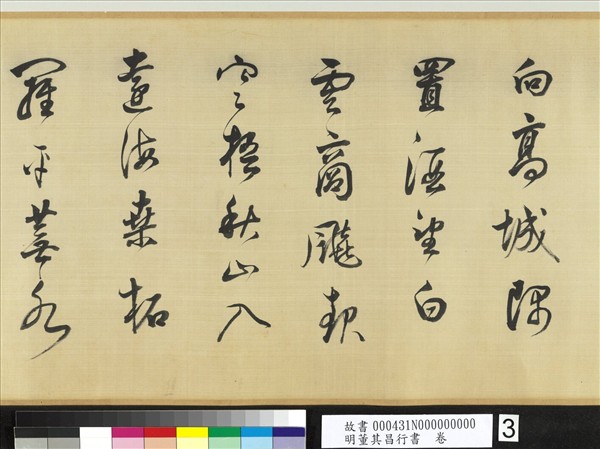 向高城隅
置酒望白
雲商飈起
寒梧秋山入
遠海桒柘
羅平蕪水
故書 000431N000000000
明董其昌行書 卷
3